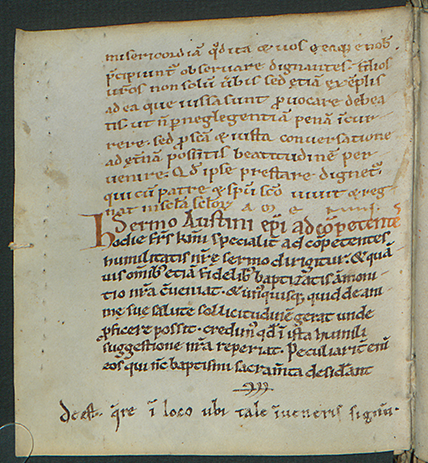 misericordiã q̃dita & uos eaq; enob̃
p̃cipiunt᷑ obseruare dignantes. filios
uros non solũ ũbis sed &iã exẽplis
ad ea que iusta sunt p̃uocare debea
tis. ut ñ p̃ neglegentiã penã ĩcur
rere. sed p̃ scã & iusta conuersatione
ad &ñã possitis beatitudinẽ per
uenire. Qd̃ ipse prestare dignet᷑.
qui cũ patre & sp̃u sc̃o uiuit & reg
nat
Sermo Austini ep̃i ad cõpetente
hodie frs̃ kmi specialit᷑ ad cõpetentes
humilitatis nr̃e sermo dirigitur. & quã
uis omĩb; &iã fidelib; baptizatis ãmoni
tio nr̃a cũeniat. & un̾quisq; quid de ani
me sue salute sollicitudinẽ gerat unde
p̃ficere possit. credim᷒ qd̃ ĩ ista humili
suggestione nr̃a reperiat. Peculiarit᷑ eni
eos qui nc̃ baptismi sacram̃ta desiđant
deest. q̃re ĩ loco ubi tale ĩueneris signũ.